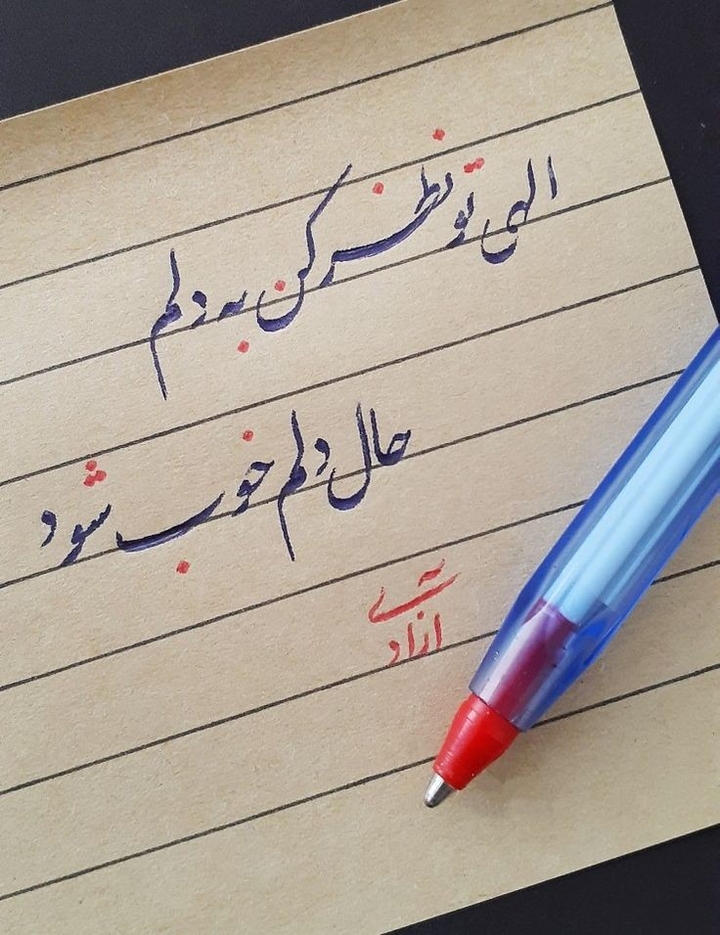 الهی تو نظر کن به دلم
حال دلم خوب شود
آزاد